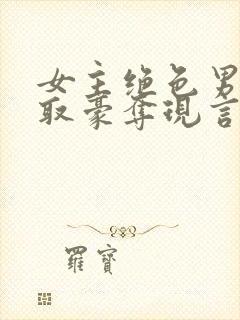 女主绝色男
取豪夺现言
羅寶